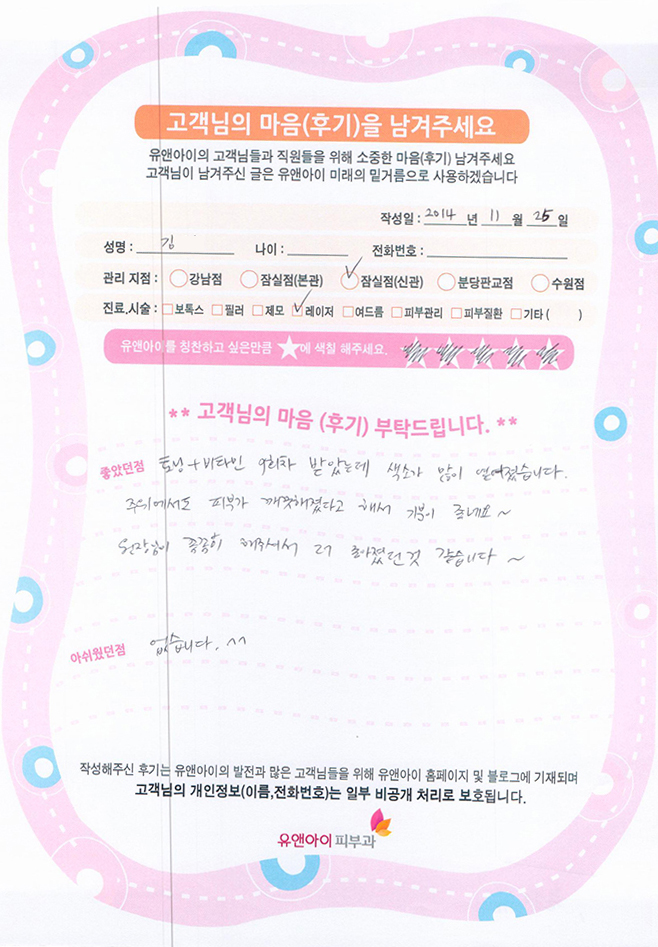 고객님의 마음(후기)을 남겨주세요
유앤아이의 고객님들과 직원들을 위해 소중한 마음(후기) 남겨주세요
고객님이 남겨주신 글은 유앤아이 미래의 밑거름으로 사용하겠습니다
작성일 : 2014 년 11 월 25 일
성명 : 김 나이 : 전화번호 :
관리 지점 : 강남점 잠실점(본관) 잠실점(신관) 분당판교점 수원점
진료.시술 : 보톡스 필러 제모 레이저 여드름 피부관리 피부질환 기타 ( )
유앤아이를 칭찬하고 싶은만큼 ★에 색칠 해주세요.
** 고객님의 마음 (후기) 부탁드립니다. **
좋았던점 토닝+비타민 9회차 받았는데 색소가 많이 옅어졌습니다.
주위에서도 피부가 깨끗해졌다고 해서 기분이 좋네요~
원장님이 꼼꼼히 해주셔서 더 좋아졌던것 같습니다~
아쉬웠던점 없습니다. ^^
작성해주신 후기는 유앤아이의 발전과 많은 고객님들을 위해 유앤아이 홈페이지 및 블로그에 기재되며
고객님의 개인정보(이름,전화번호)는 일부 비공개 처리로 보호됩니다.
유앤아이 피부과